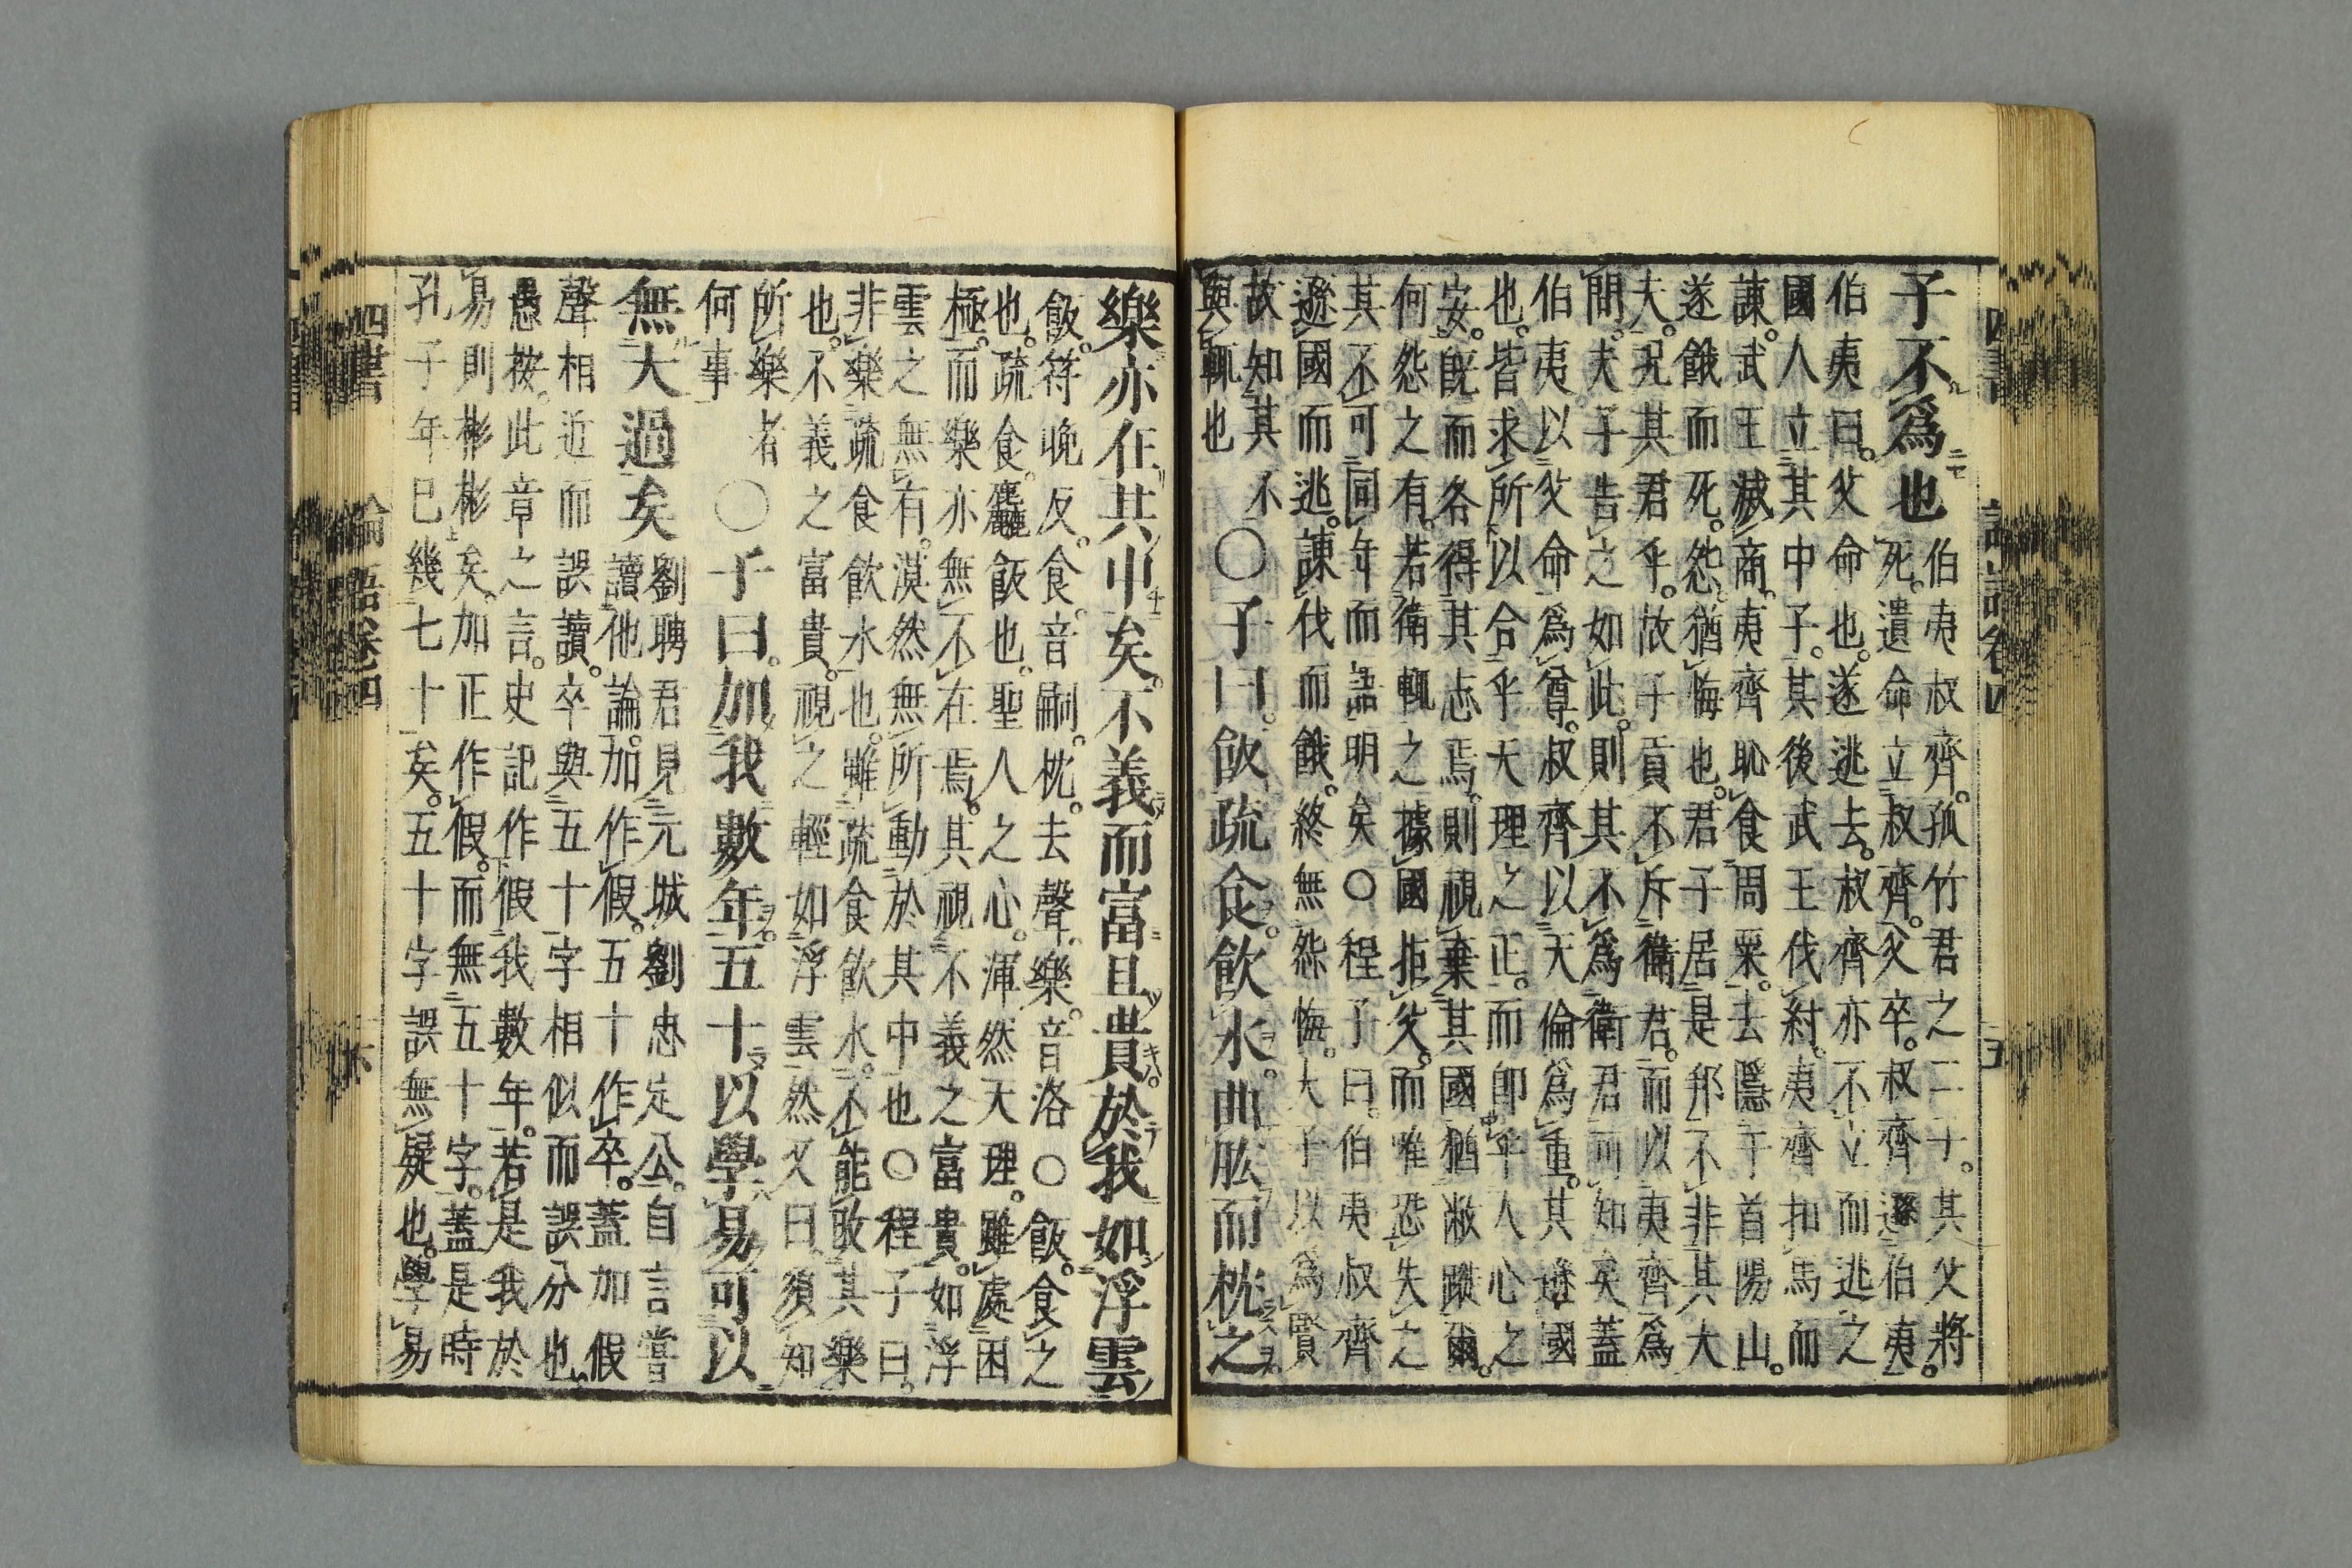 子不爲也
伯夷叔齊。孤竹君之二子。其父將
死。遺命立叔齊。父卒。叔齊遜伯夷。
伯夷曰。父命也。遂逃去。叔齊亦不立而逃之
國人立其中子。其後武王伐紂。夷齊扣馬而
諫。武王滅商。夷齊恥食周粟。去隱于首陽山。
遂餓而死。怨猶悔也。君子居是邦不非其大
夫。況其君乎。故子貢不斥衛君。而以夷齊爲
問。夫子告之如此。則其不爲衛君可知矣蓋
伯夷以父命爲尊。叔齊以天倫爲重。其遜國
也。皆求所以合乎天理之正。而即乎人心之
安。既而各得其志焉。則視棄其國猶敝蹝爾。
何怨之有。若衛輒之據國拒父。而唯恐失之
其不可同年而語明矣○程子曰。伯夷叔齊
遜國而逃。諫伐而餓。終無怨悔。夫子以爲賢
故知其不
與輒也
○子曰。飯疏食。飲水。曲肱而枕之
樂亦在其中矣。不義而富且貴。於我如浮雲
飯。符晚反。食。音嗣。枕。去聲。樂。音洛○飯。食之
也。疏食。麤飯也。聖人之心。渾然天理。雖處困
極。而樂亦無不在焉。其視不義之富貴。如浮
雲之無有。漠然無所動於其中也○程子曰。
非樂疏食飲水也。雖疏食飲水。不能改其樂
也。不義之富貴。視之輕如浮雲然又曰。須知
所樂者
何事
○子曰。加我數年。五十以學易可以
無大過矣
劉聘君見元城劉忠定公。自言嘗
讀他論。加作假。五十作卒。蓋加假
聲相近而誤讀。卒與五十字相似而誤分也。
愚按。此章之言。史記作假我數年。若是我於
易則彬彬矣。加正作假。而無五十字。蓋是時
孔子年已幾七十矣。五十字誤無疑也。學易
四書 論語卷四